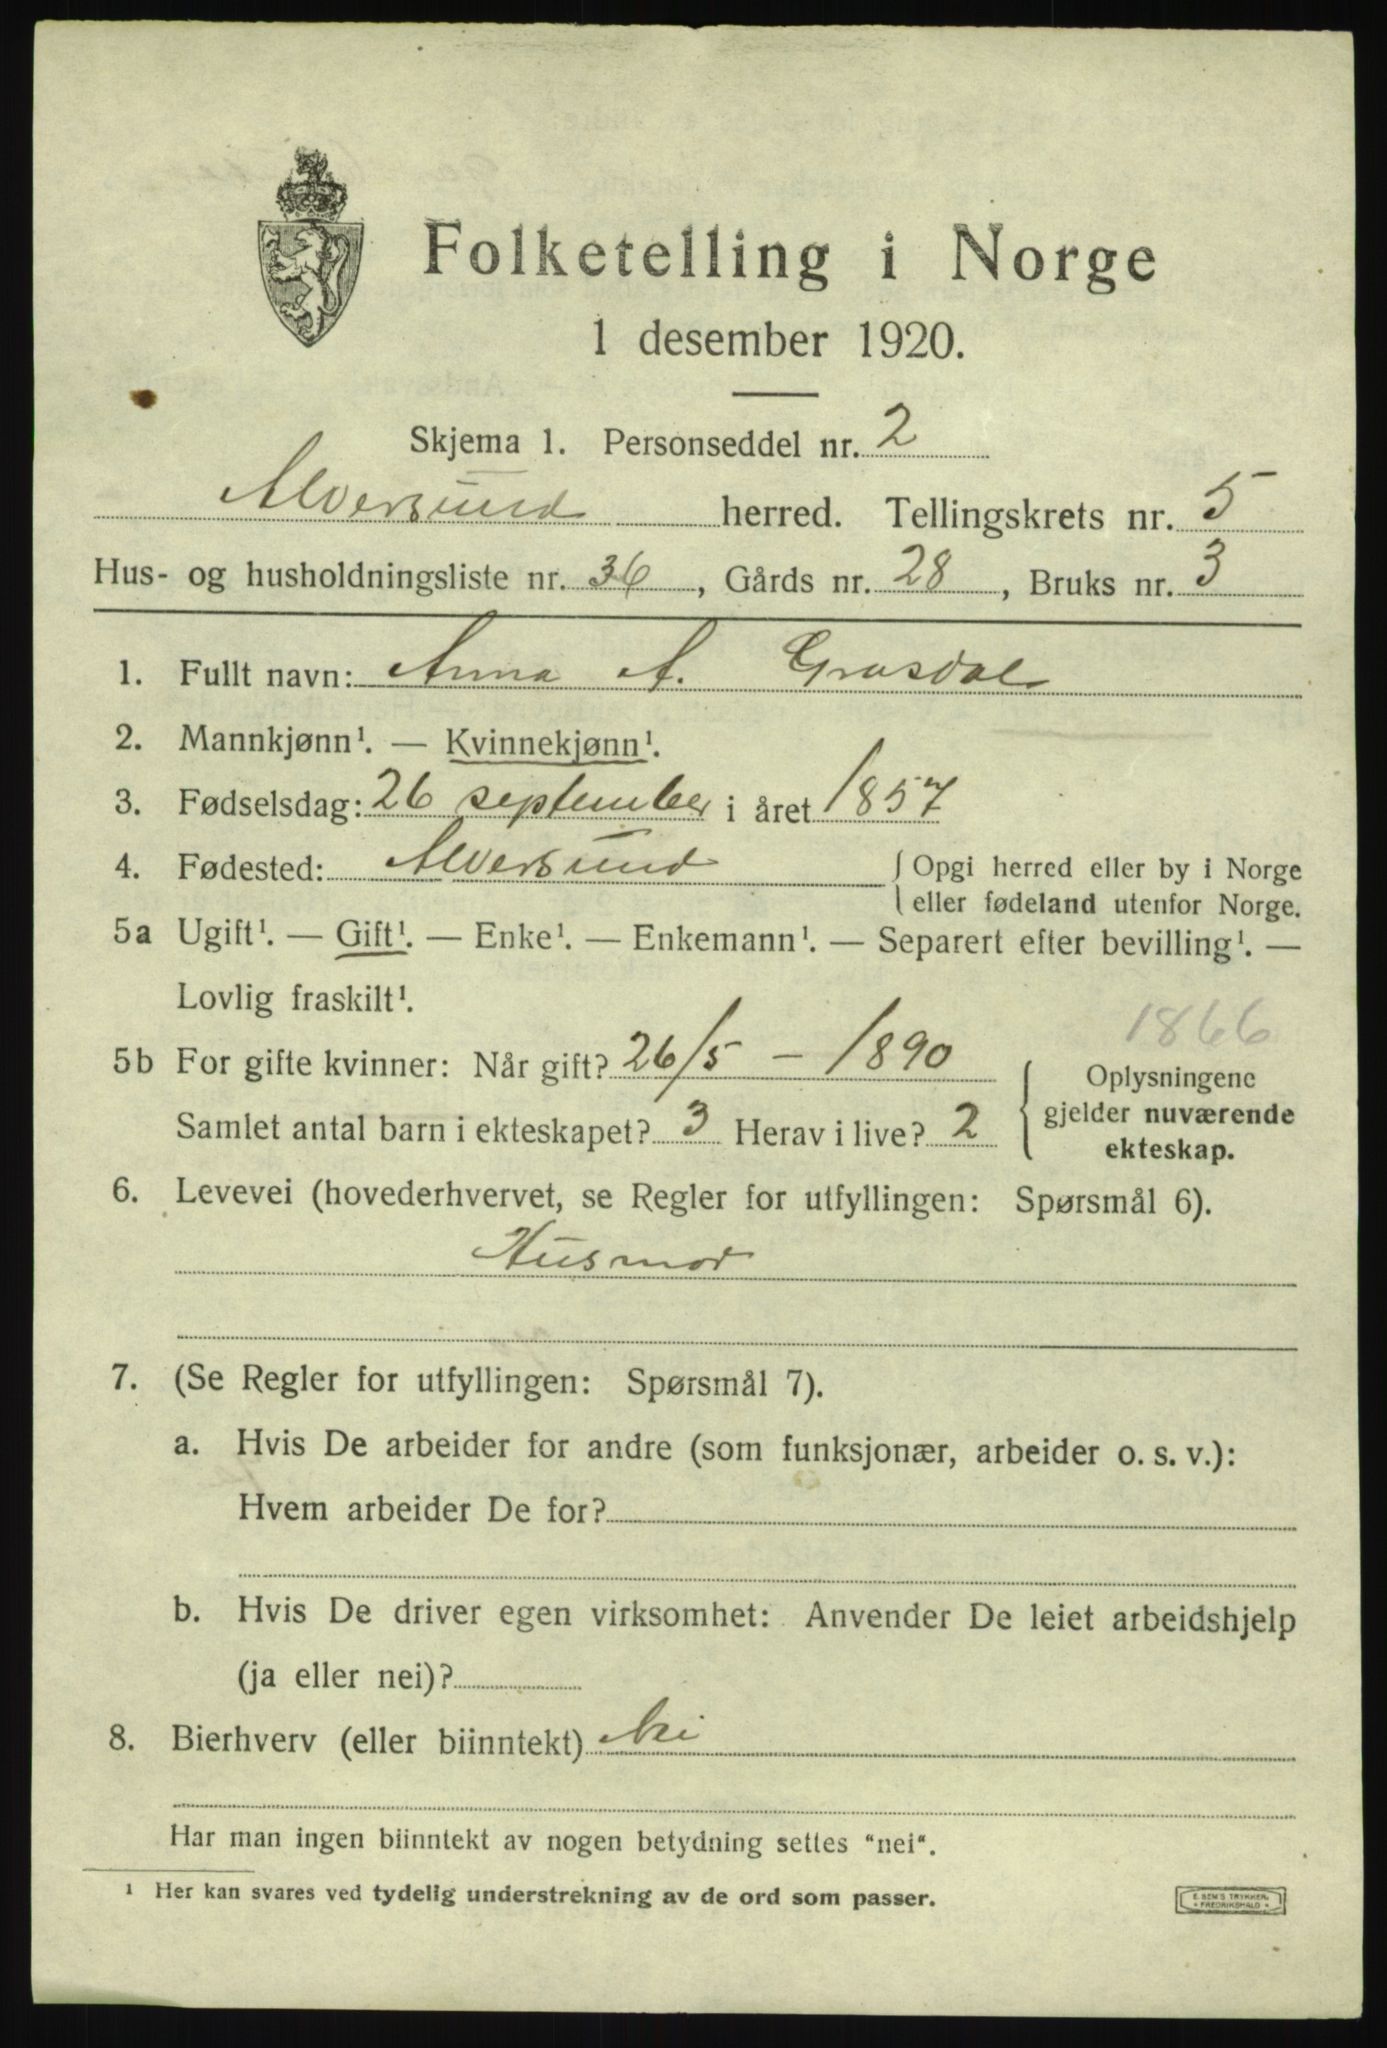 Folketelling i Norge
1 desember 1920.
Skjema 1. Personseddel nr. 2
Alversund herred. Tellingskrets nr. 5
Hus- og husholdningsliste nr. 36, Gårds nr. 28, Bruks nr. 3
1. Fullt navn: Anna A. Grasdal
2. Mannkjønn¹. — Kvinnekjønn¹.
3. Fødselsdag: 26 september i året 1857
4. Fødested: Alversund { Opgi herred eller by i Norge
eller fødeland utenfor Norge.
5a Ugift¹. — Gift¹. — Enke¹. — Enkemann¹. — Separert efter bevilling¹. —
Lovlig fraskilt¹.
1866
5b For gifte kvinner: Når gift? 26/5 – 1890 { Oplysningene
gjelder nuværende
Samlet antal barn i ekteskapet? 3 Herav i live? 2
ekteskap.
6. Levevei (hovederhvervet, se Regler for utfyllingen: Spørsmål 6).
Husmor
7. (Se Regler for utfyllingen: Spørsmål 7).
a. Hvis De arbeider for andre (som funksjonær, arbeider o. s. v.):
Hvem arbeider De for?
b. Hvis De driver egen virksomhet: Anvender De leiet arbeidshjelp
(ja eller nei)?
8. Bierhverv (eller biinntekt) Nei
Har man ingen biinntekt av nogen betydning settes "nei".
¹ Her kan svares ved tydelig understrekning av de ord som passer.
E. SEM'S TRYKKERI
FREDRIKSHALD